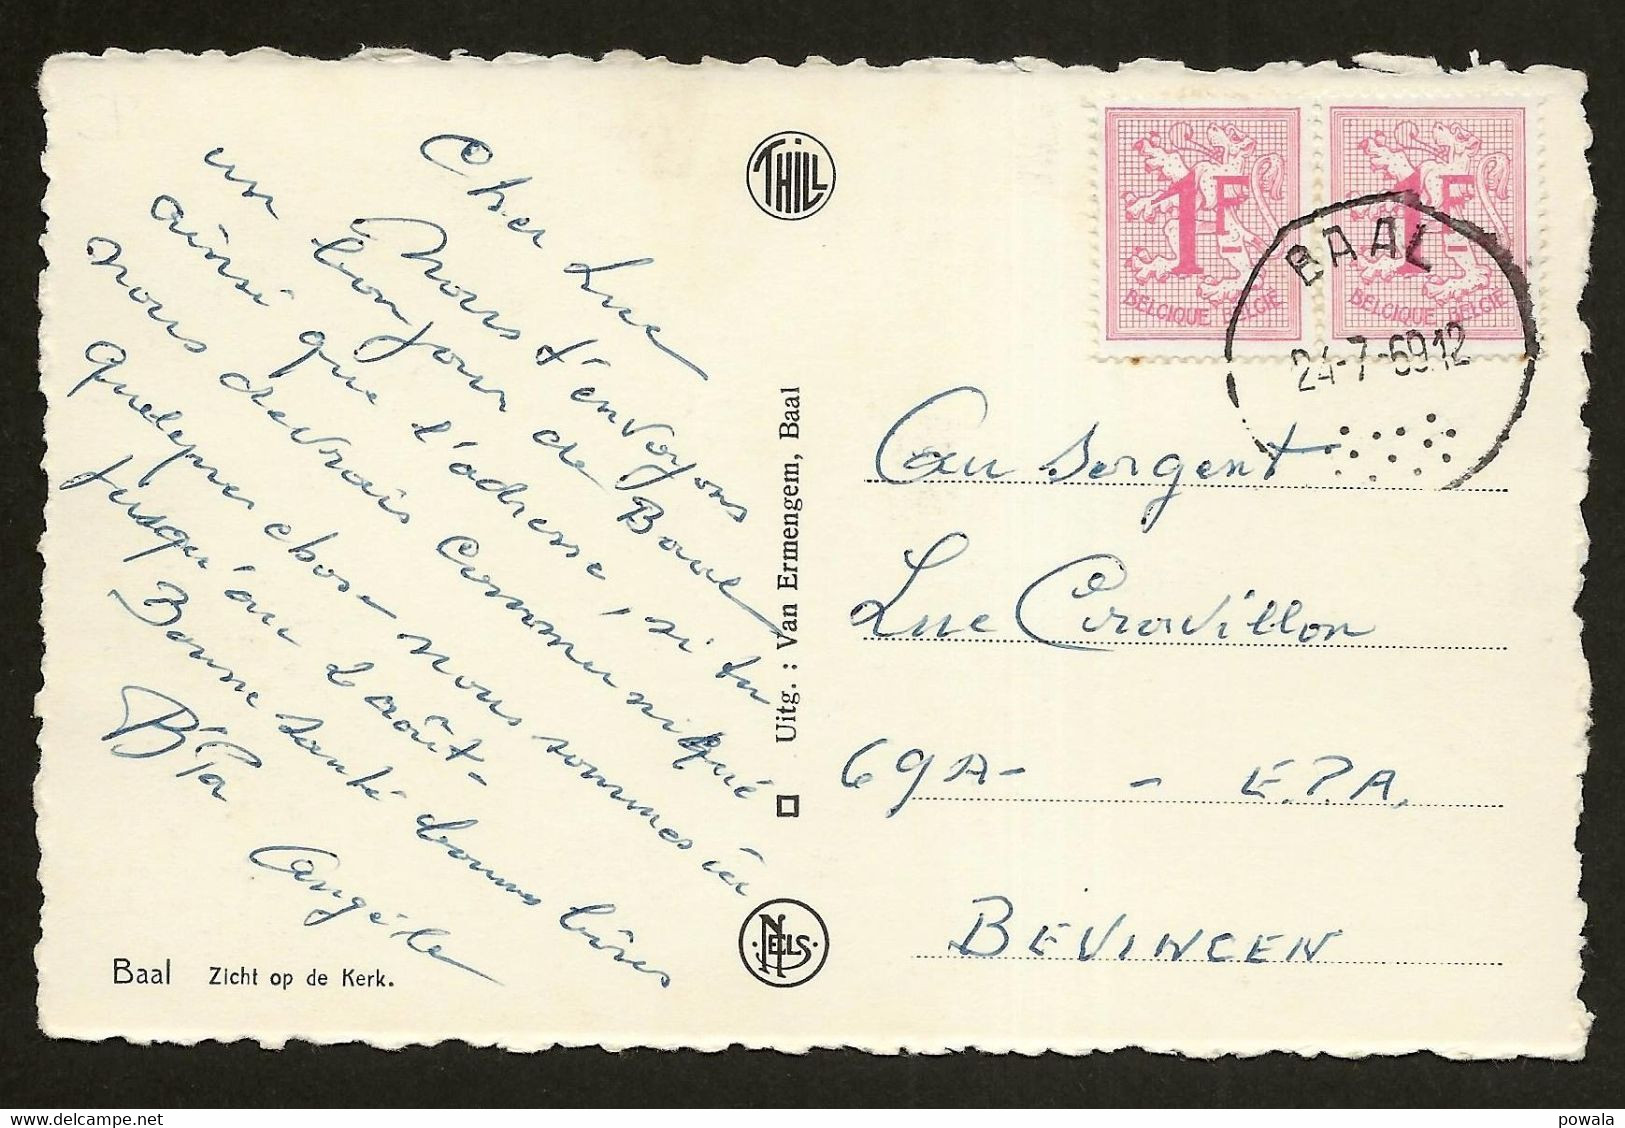 Cher Luc
Nous t'envoyons
un bonjour de Baal
ainsi que l'adresse, si tu
nous devrais communiqué
quelque chose nous sommes ici
jusqu'au 2 août-
Bonne santé bonnes bises
B Pa
Angèle
Baal Zicht op de Kerk.
THILL
Uitg. : Van Ermengem, Baal
NELS
1F
BELGIQUE BELGIË
1F
BELGIQUE BELGIË
BAAL
24-7-69 12
Au Sergent
Luc
69A- - E.P.A.
BEVINGEN
powala